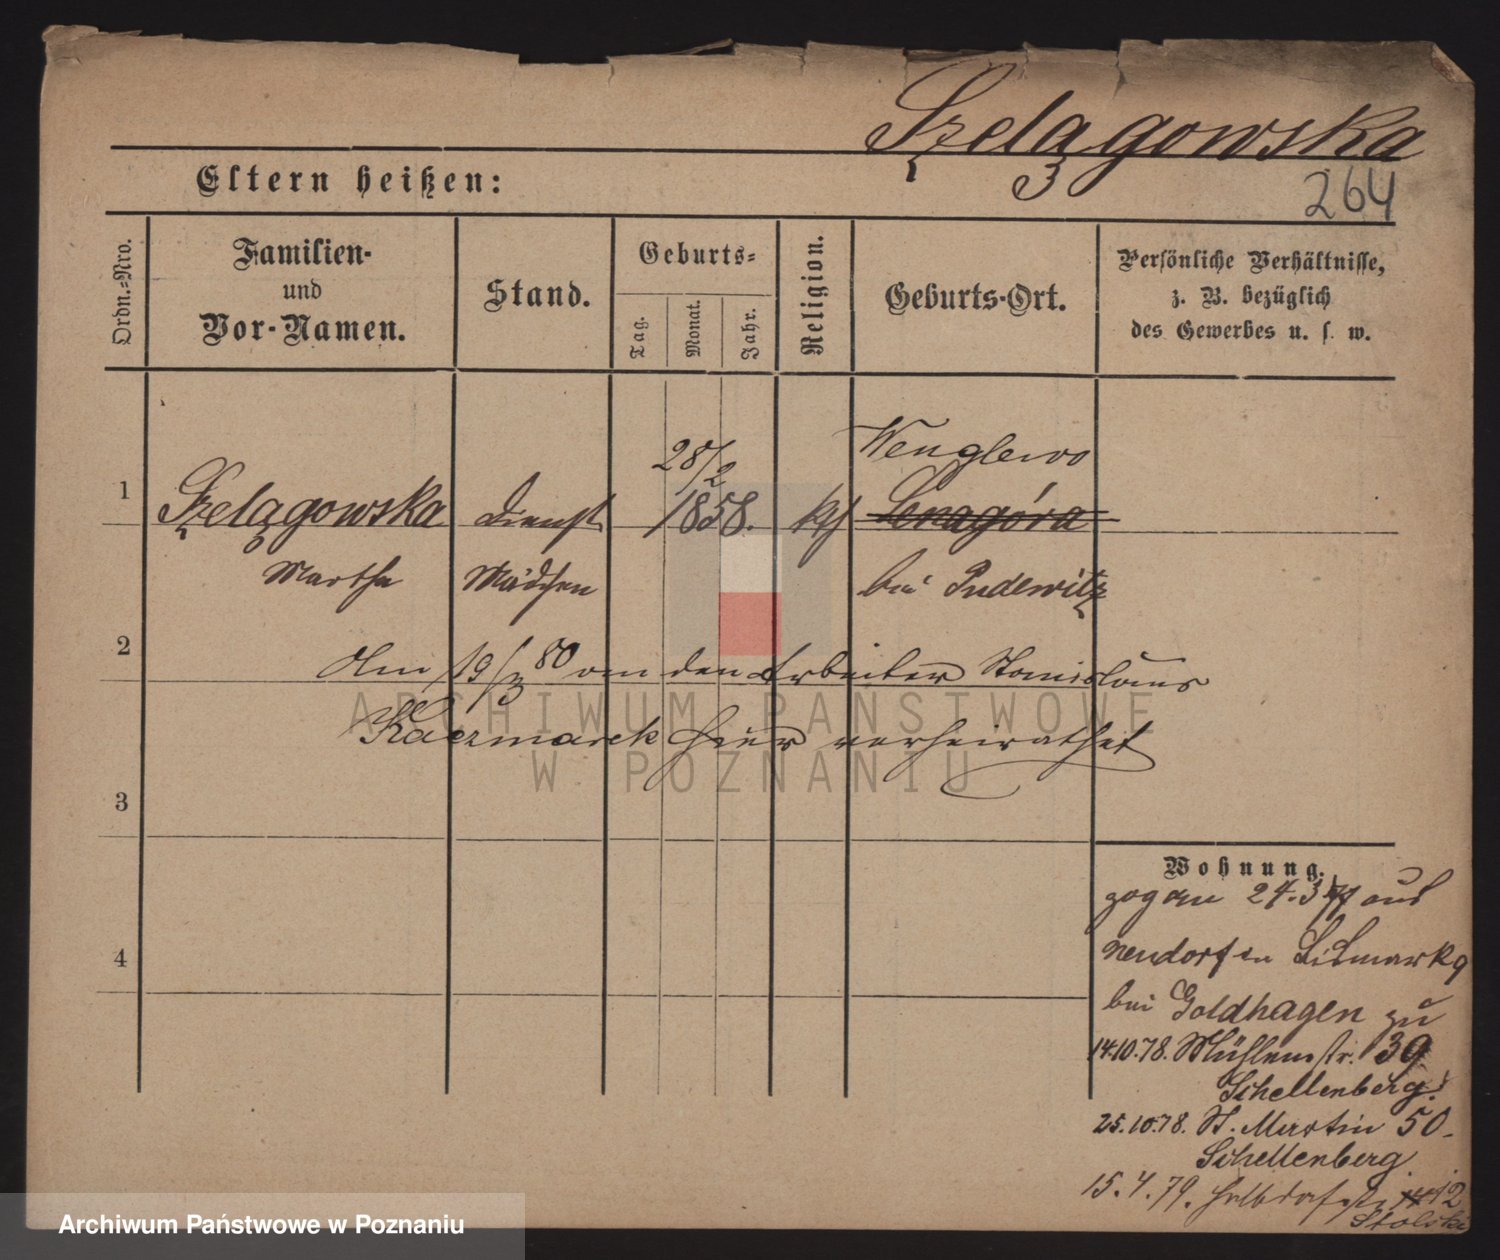 Szelągowska
264
Eltern heißen:
Ordn.-Nro.
Familien-
und
Vor-Namen.
Stand.
Geburts-
Tag.
Monat.
Jahr.
Religion.
Geburts-Ort.
Persönliche Verhältnisse,
z. B. bezüglich
des Gewerbes u. s. w.
Wenglewo
28/2
1 Szelągowska Dienst 1858. kath Lenagóra
Martha Mädchen bei Pudewitz
2
Am 19/3 80 von den Arbeiter Stanislaus
Kaczmarek hier verheirathet
ARCHIWUM PAŃSTWOWE
W POZNANIU
3
4
Wohnung.
zog am 24.3 77 aus
neudorf in Bismarkg
bei Goldhagen zu
14.10.78. Mühlenstr. 39
Schellenberg.
25.10.78. St. Martin 50.
Schellenberg.
15.4.79. Halbdorfstr 12
Stolski
Archiwum Państwowe w Poznaniu